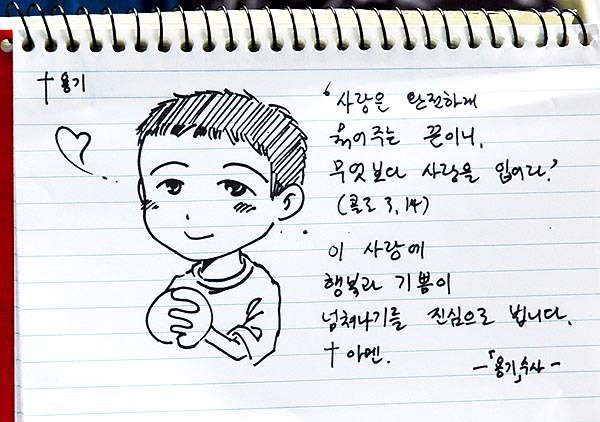 † 용기
'사랑은 완전하게
묶어주는 끈이니,
무엇보다 사랑을 입어라.'
(콜로 3,14)
이 사랑에
행복과 기쁨이
넘쳐나기를 진심으로 빕니다.
† 아멘.
-「용기」수사-